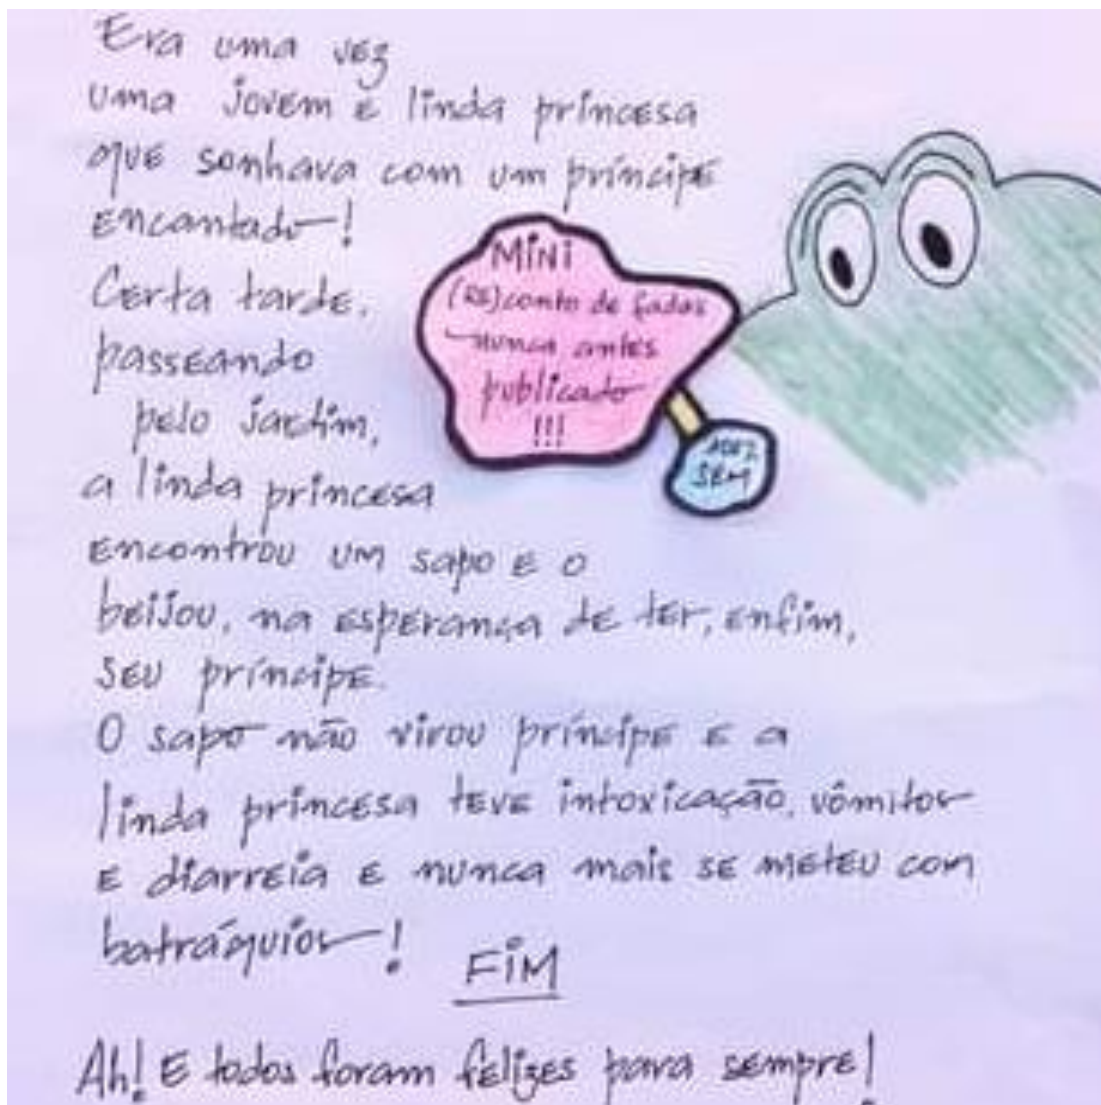 Era uma vez
uma jovem e linda princesa
que sonhava com um príncipe
encantado!
Certa tarde,
passeando
pelo jardim,
a linda princesa
encontrou um sapo e o
beijou, na esperança de ter, enfim,
seu príncipe.
O sapo não virou príncipe e a
linda princesa teve intoxicação, vômitos
e diarreia e nunca mais se meteu com
batráquios!
FIM
Ah! E todos foram felizes para sempre!
MINI
(RE)conto de fadas
nunca antes
publicado
!!!
SEM